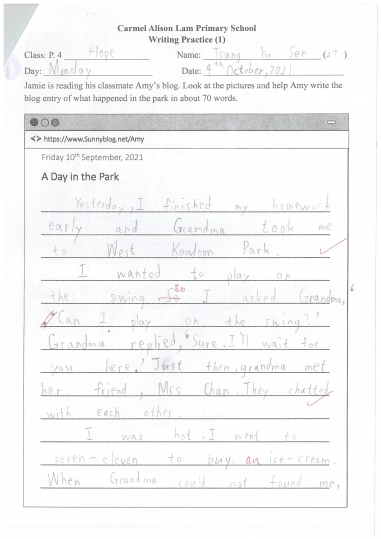 Carmel Alison Lam Primary School
Writing Practice (1)
Class: P. 4 Hope Name: Tsang Yu Sen (27)
Day: Monday Date: 4th October, 2021
Jamie is reading his classmate Amy's blog. Look at the pictures and help Amy write the
blog entry of what happened in the park in about 70 words.
<> https://www.Sunnyblog.net/Amy
Friday 10th September, 2021
A Day in the Park
Yesterday, I finished my homework
early and Grandma took me
to West Kowloon Park.
I wanted to play on
so
the swing So I asked Grandma,
'Can I play on the swing?'
Grandma replied, 'Sure. I'll wait for
you here.' Just then, grandma met
her friend, Mrs Chan. They chatted
with each other.
I was hot. I went to
seven-eleven to buy an ice-cream.
When Grandma could not found me,